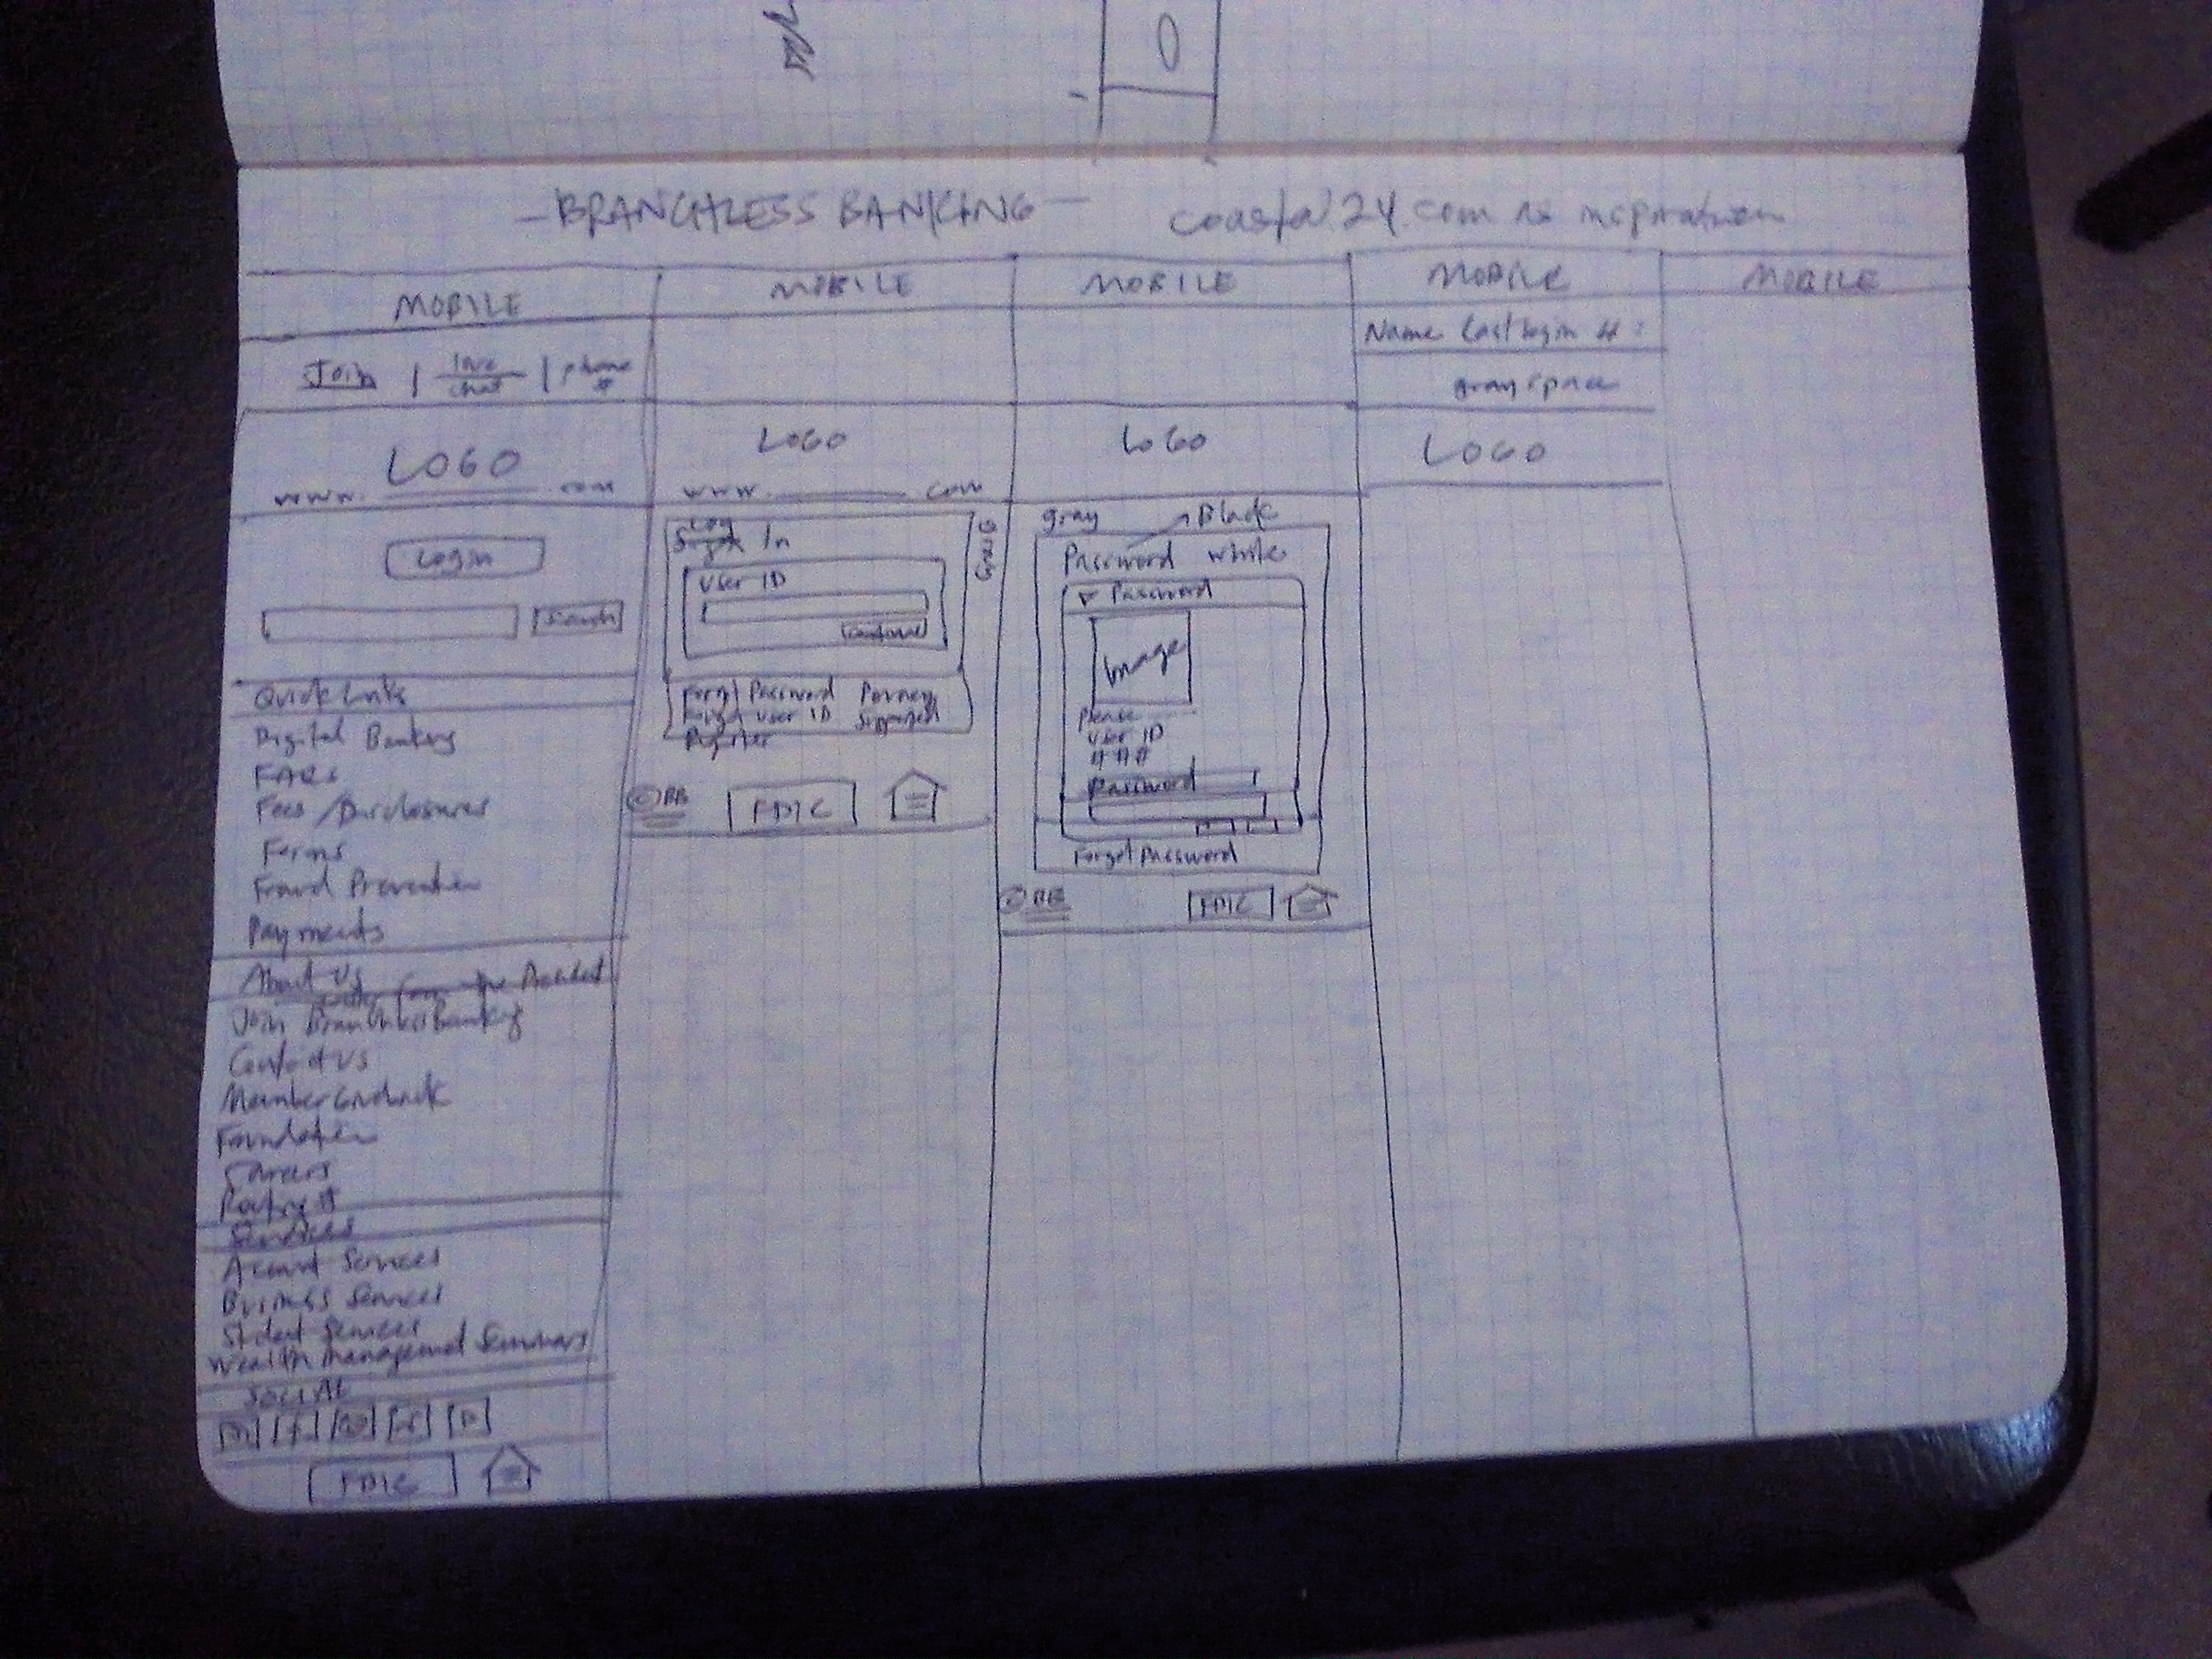 — BRANCHLESS BANKING — coastal24.com as inspiration
MOBILE
Join | live chat | phone #
LOGO
www. .com
Login
Search
Quick Links
Digital Banking
FAQs
Fees / Disclosures
Forms
Fraud Prevention
Payments
About Us
from the President
Join Branchless Banking
Contact Us
Member
Foundation
Careers
Routing #
Services
Account Services
Business Services
Student Services
Wealth Management Seminars
SOCIAL
FDIC
MOBILE
LOGO
www. .com
Log
Sign In
Gray
User ID
Continue
Forgot Password
Forgot User ID
Register
© BB
FDIC
MOBILE
LOGO
gray Black
Password white
Password
Image
Please
User ID
###
Password
Forgot Password
© BB
FDIC
MOBILE
Name Last login #:
gray space
LOGO
MOBILE